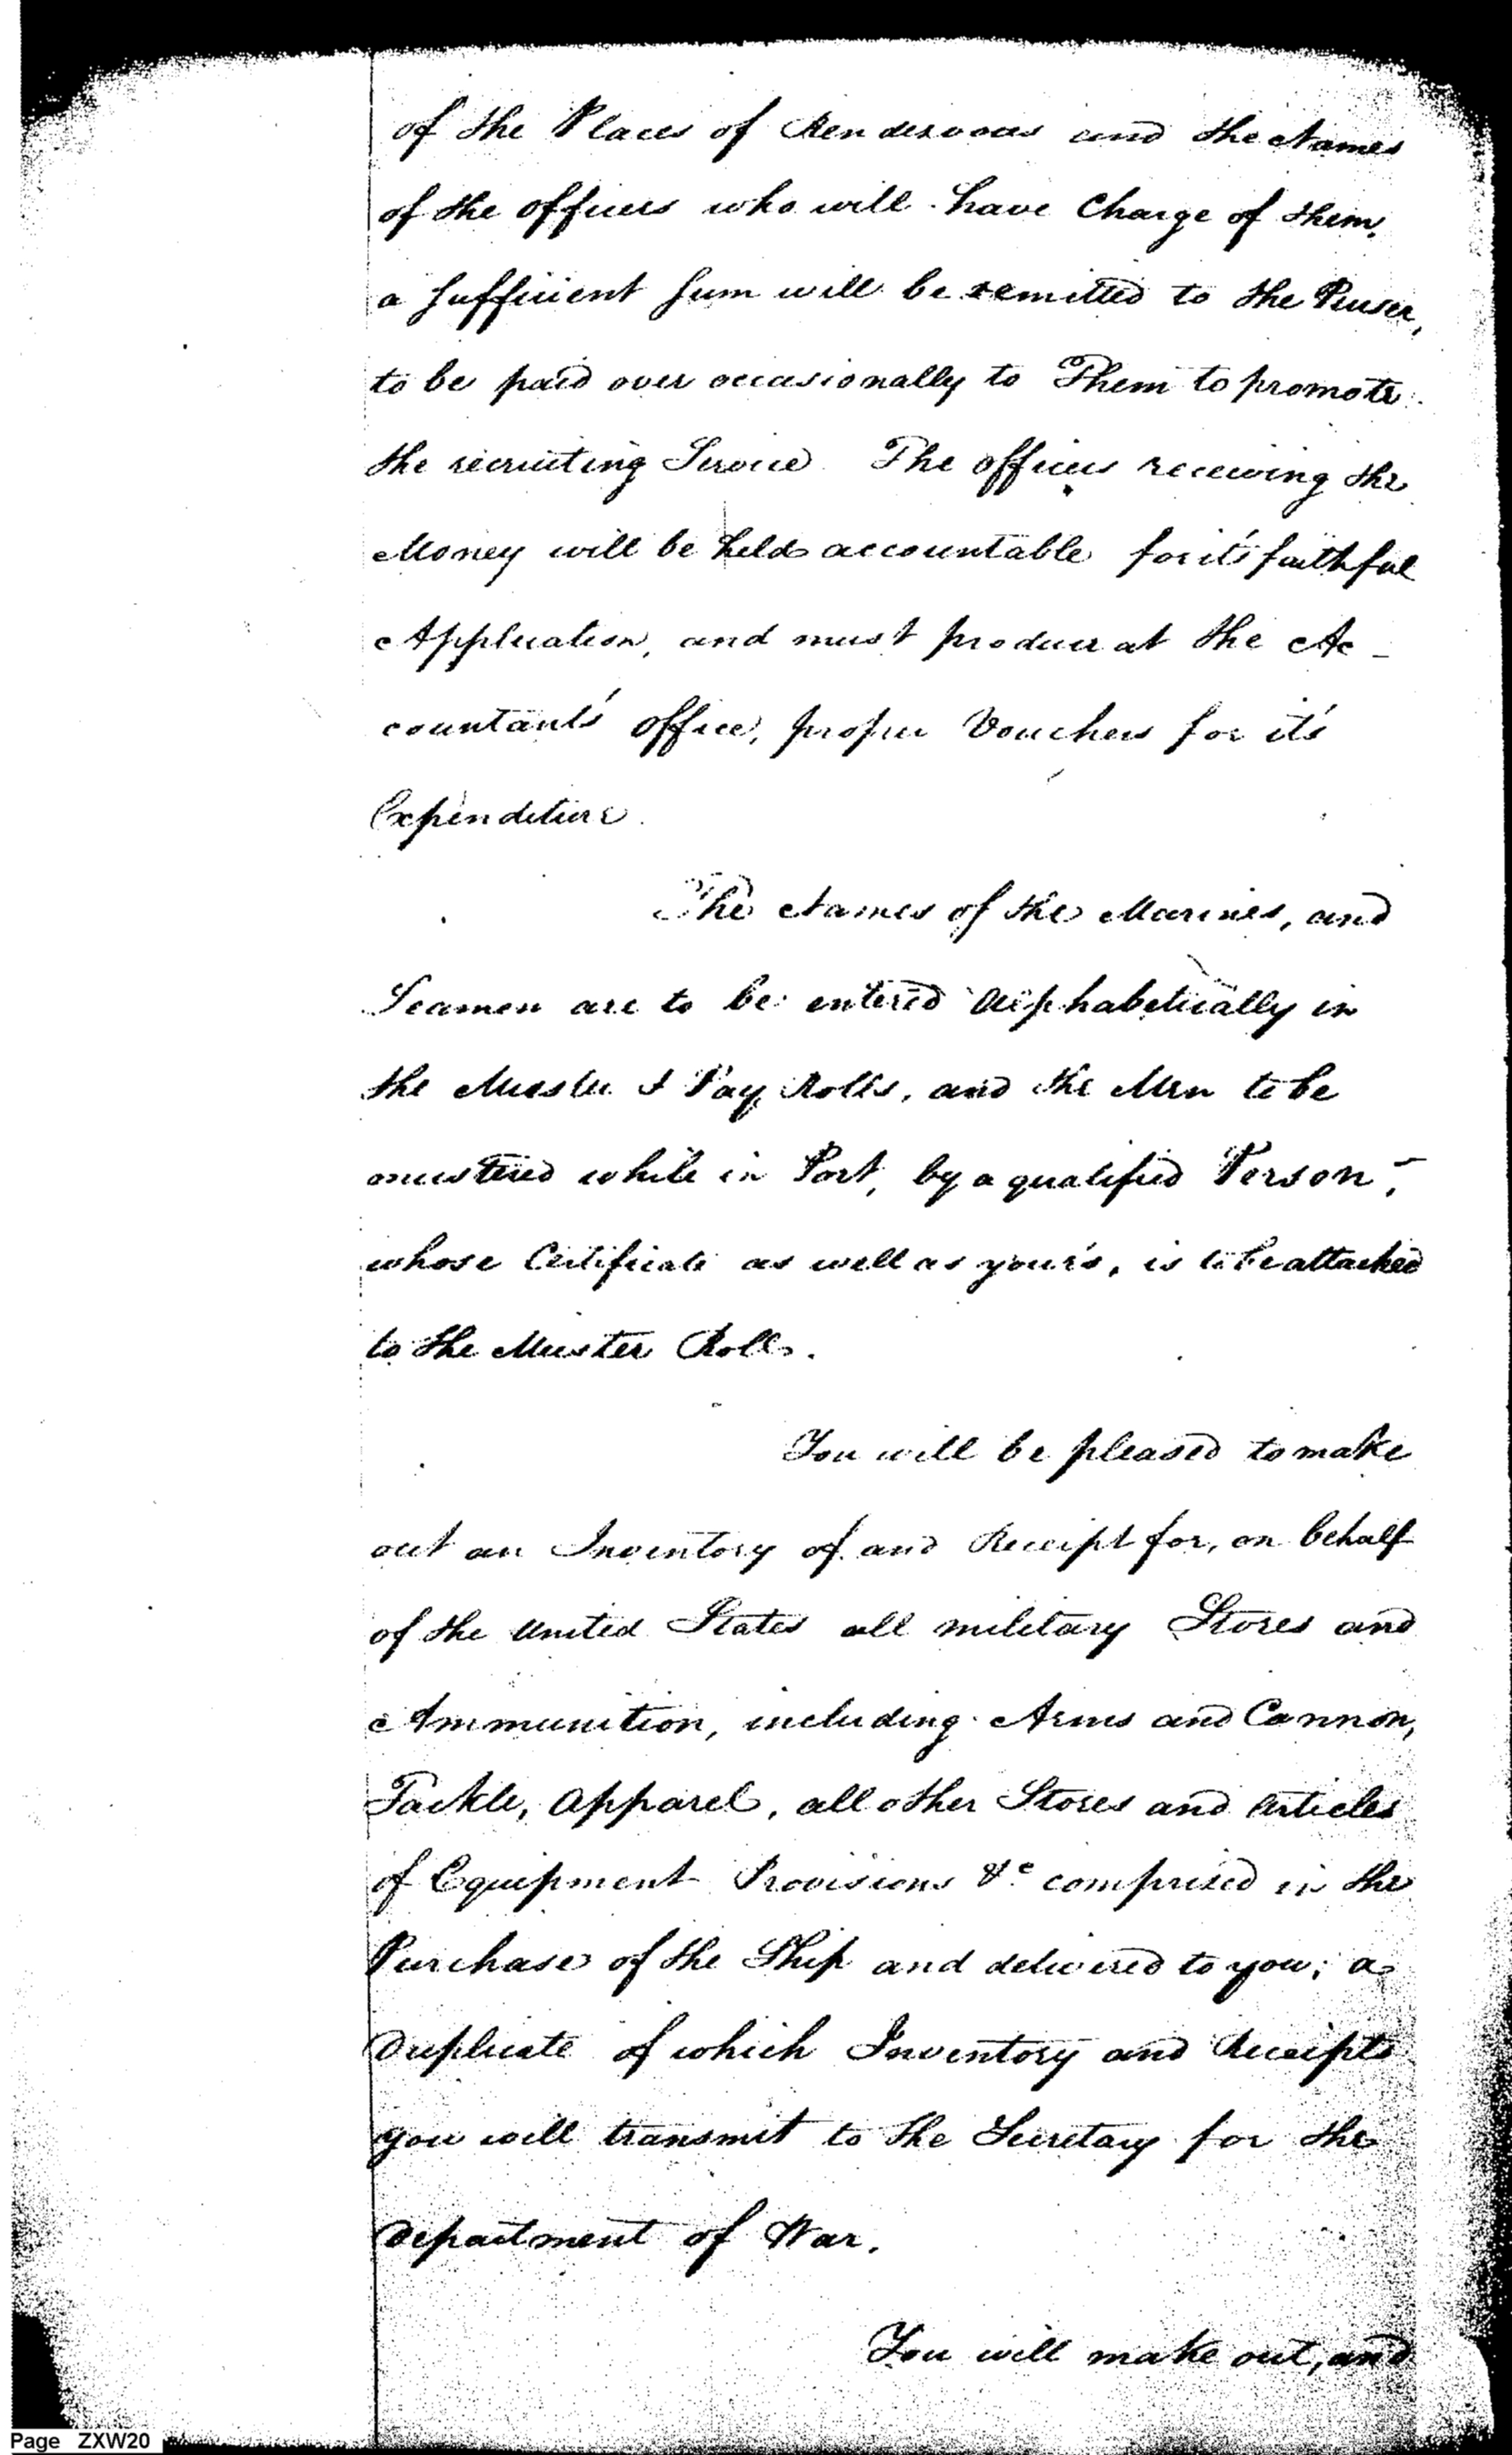 of the Places of Rendesvous and the Names
of the officers who will have Charge of them.
a sufficient sum will be remitted to the Purser,
to be paid over occasionally to Them to promote
the recruiting Service The officers receiving the
Money will be held accountable for it's faithful
Application, and must produce at the Ac-
countant's office, proper Vouchers for it's
Expenditure.
The Names of the Marines, and
Seamen are to be entered Alphabetically in
the Muster & Pay Rolls, and the Men to be
mustered while in Port, by a qualified Person,
whose Certificate as well as your's, is to be attached
to the Muster Rolls.
You will be pleased to make
out an Inventory of and Receipt for, on behalf
of the United States all military Stores and
Ammunition, including Arms and Cannon,
Tackle, Apparel, all other Stores and Articles
of Equipment Provisions &c comprised in the
Purchase of the Ship and delivered to you; a
Duplicate of which Inventory and Receipts
you will transmit to the Secretary for the
Department of War.
You will make out, and
Page ZXW20